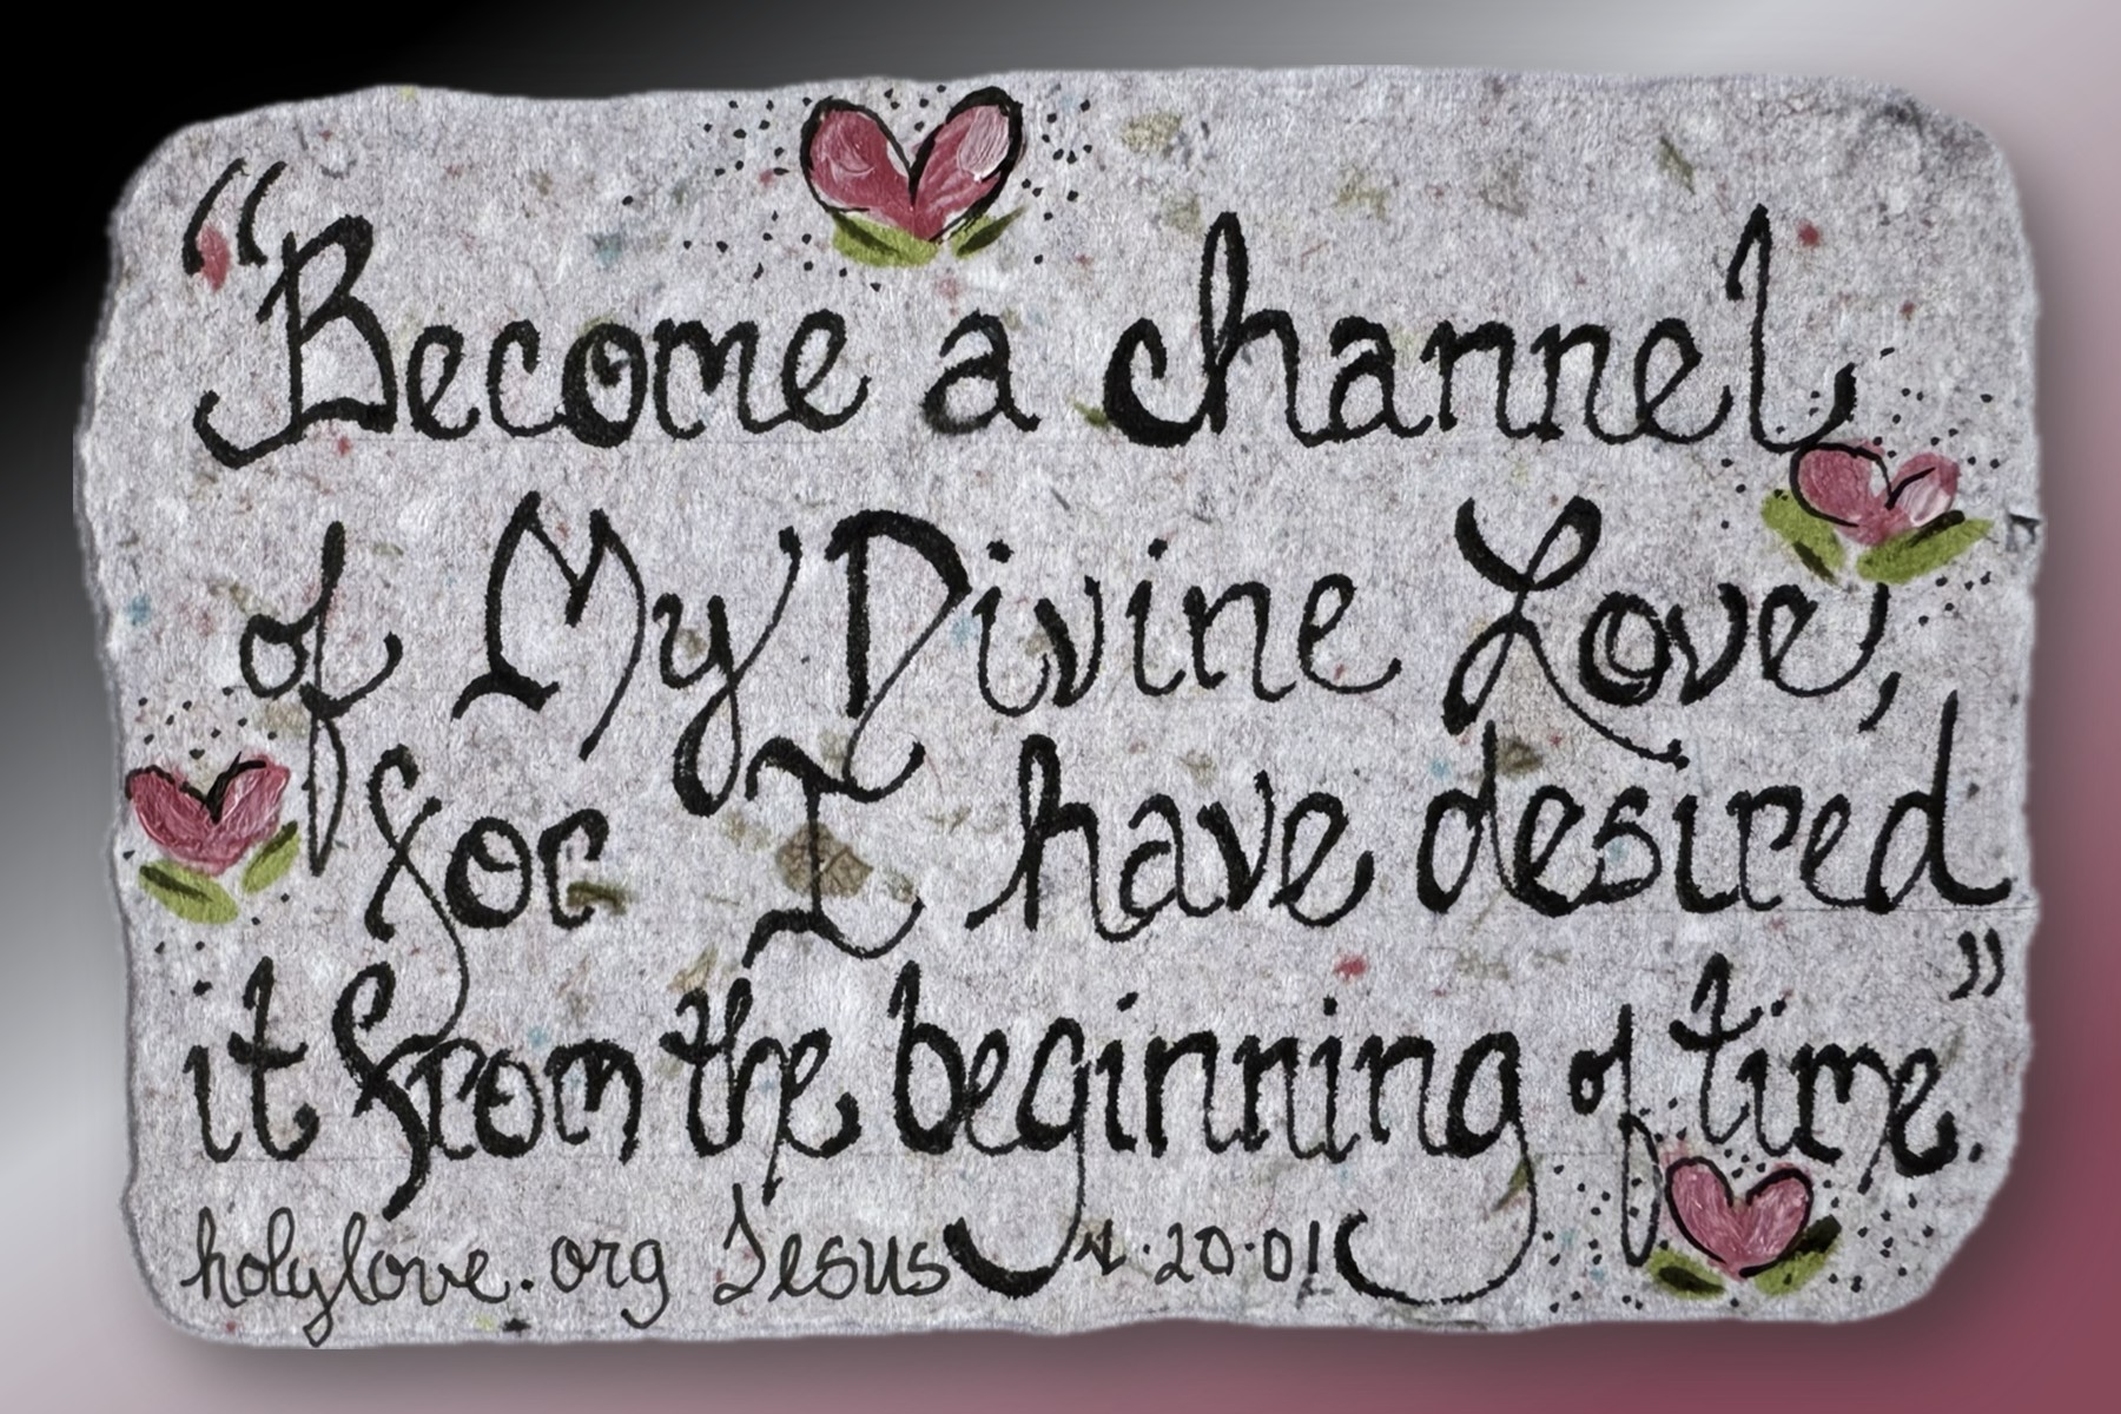 “Become a channel
of My Divine Love,
for I have desired
it from the beginning of time.”
holylove.org Jesus 20.01